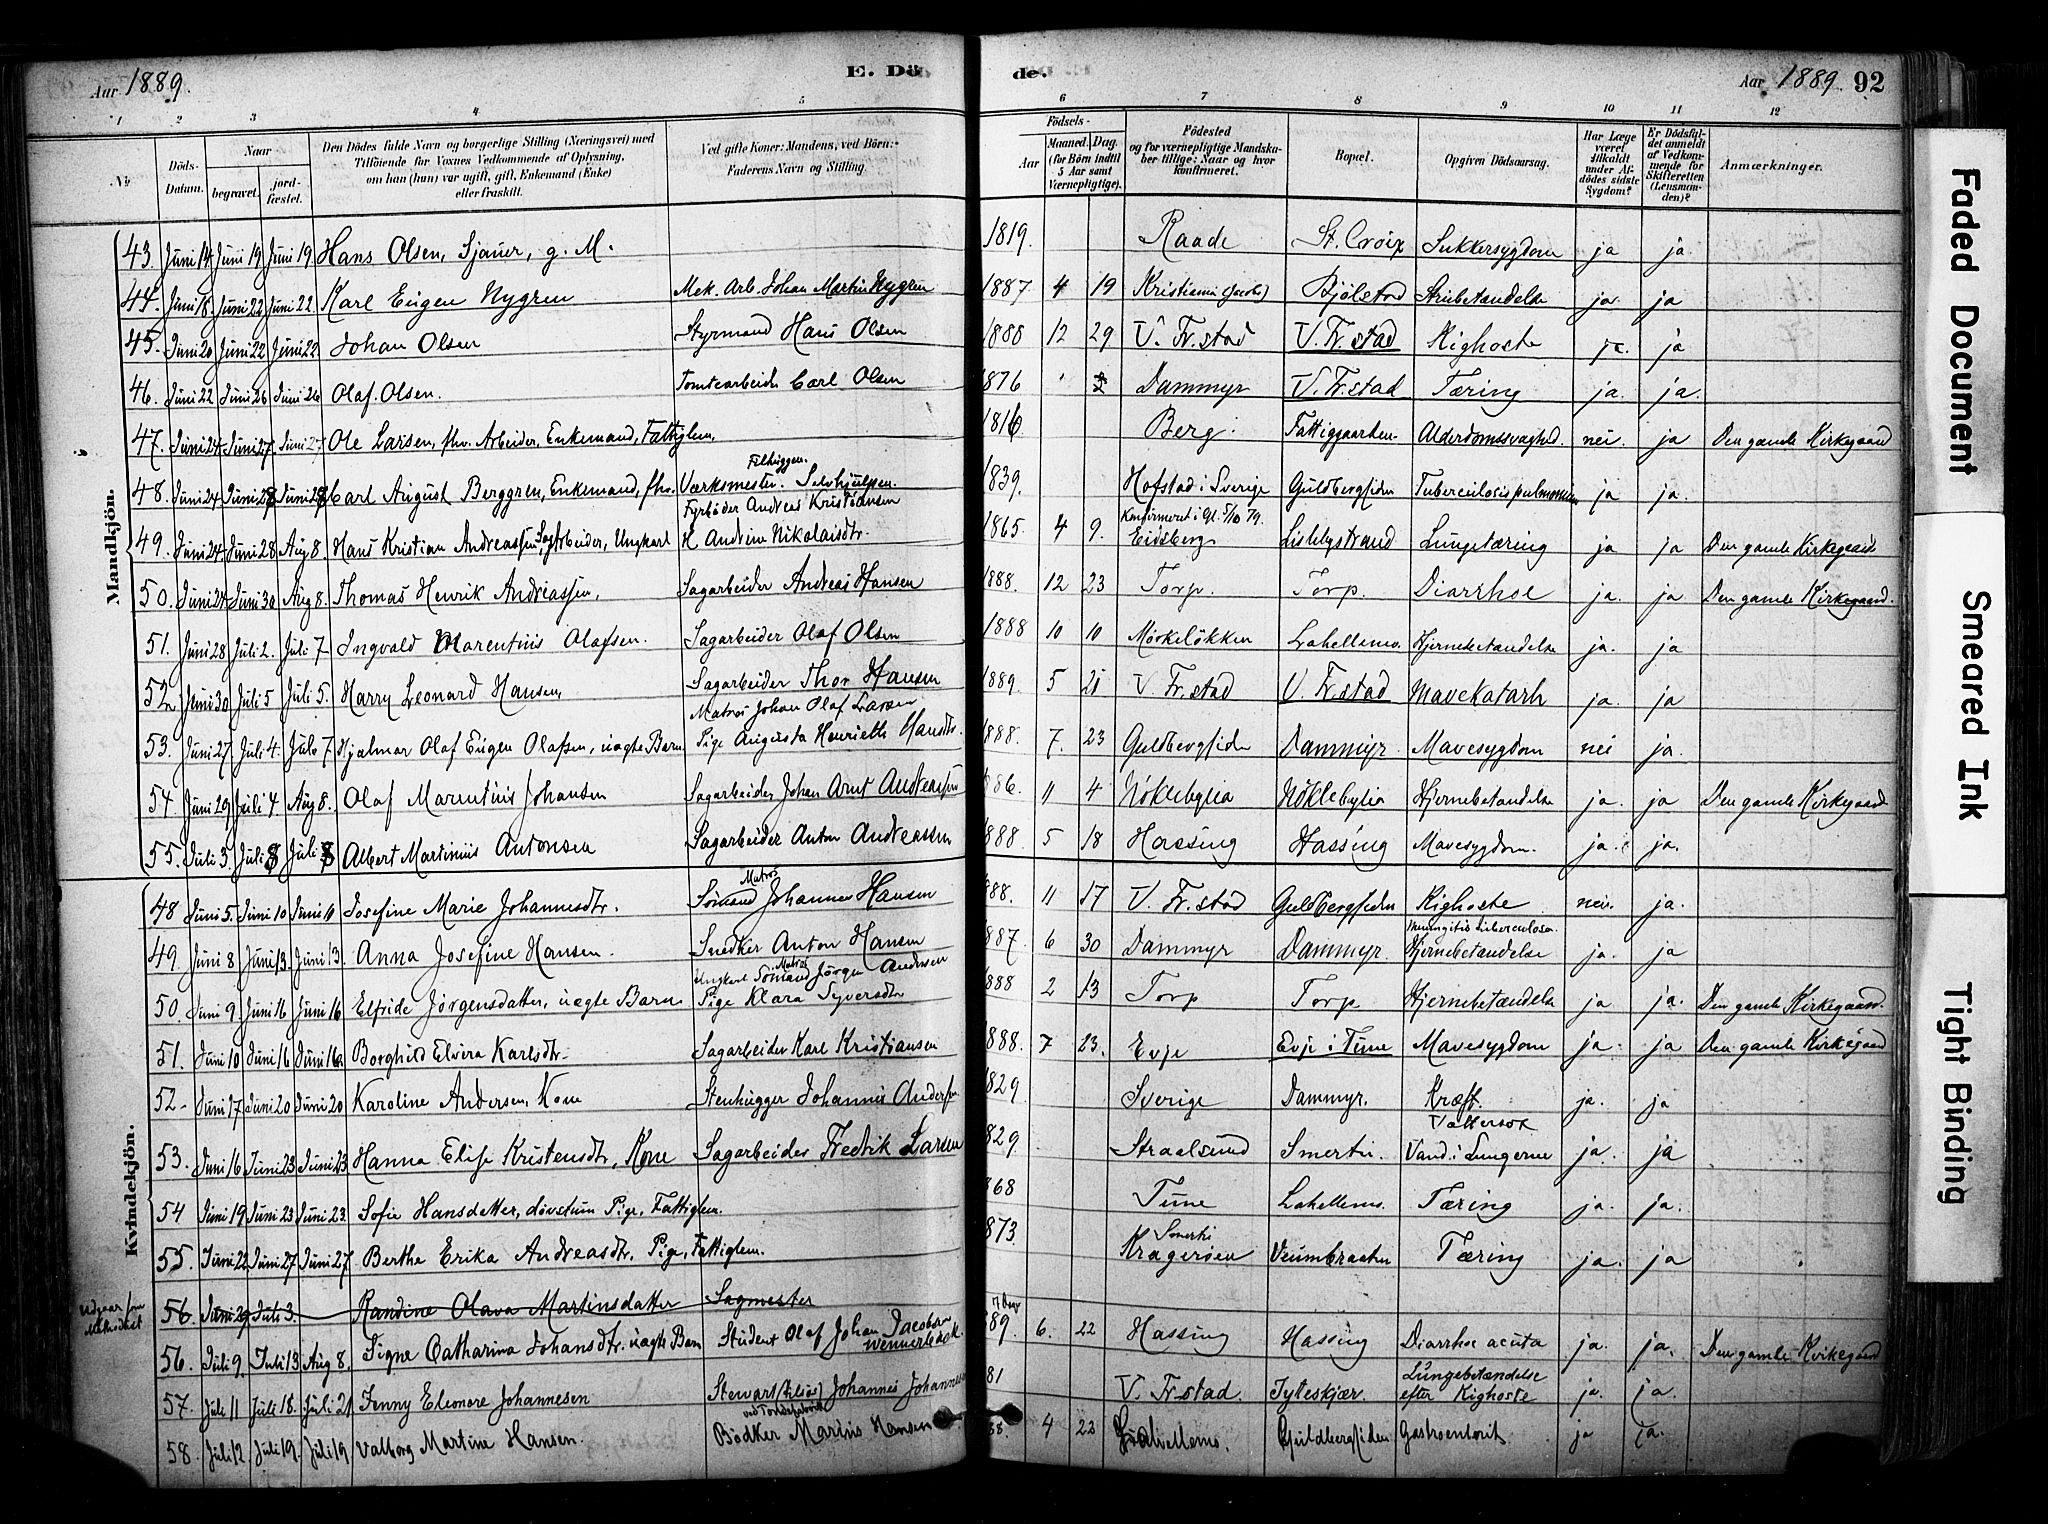 Aar 1889.
E. Dö de.
Aar 1889. 92
1 2 3 4 5 6 7 8 9 10 11 12
No
Döds-Datum.
Naar begravet. jordfæstet.
Den Dödes fulde Navn og borgerlige Stilling (Næringsvei) med Tilföiende for Voxnes Vedkommende af Oplysning, om han (hun) var ugift, gift, Enkemand (Enke) eller fraskilt.
Ved gifte Koner: Mandens, ved Börn: Faderens Navn og Stilling.
Födsels- Aar Maaned. Dag. (for Börn indtil 5 Aar samt Værnepligtige).
Födested og for værnepligtige Mandskaber tillige: Naar og hvor konfirmeret.
Bopæl.
Opgiven Dödsaarsag.
Har Læge været tilkaldt under Afdödes sidste Sygdom?
Er Dödsfaldet anmeldt af Vedkommende for Skifteretten (Lensmanden)?
Anmærkninger.
Mandkjön.
43. Juni 14 Juni 19 Juni 19. Hans Olsen, Sjauer, g. M. 1819. Raade St. Croix Sukkersygdom ja ja.
44. Juni 18. Juni 22 Juni 22. Karl Eugen Nygren Mek. Arb. Johan Martin Nygren 1887 4 19 Kristiania (Jacobs) Bjølstad ja. ja
45. Juni 20 Juni 22 Juni 22 Johan Olsen Styrmand Hans Olsen 1888 12 29 V. Fr.stad V. Fr.stad Kighoste ja. ja
46. Juni 22 Juni 26 Juni 26 Olaf Olsen. Tomtearbeider Carl Olsen 1876 Dammyr V. Fr.stad Tæring ja. ja.
47. Juni 24 Juni 27. Juni 27 Ole Larsen, fhv. Arbeider, Enkemand, Fattiglem. 1816 Berg. Fattiggaarden. Alderdomssvaghed. nei. ja Den gamle Kirkegaard
48. Juni 24 Juni 28 Juni 28 Carl August Berggren, Enkemand, fhv. Værksmester. Selvhjulpen. Filhuggen. 1839. Hofstad i Sverige Guldbergsiden Tuberculosis pulmonum ja ja.
49. Juni 24 Juni 28 Aug 8. Hans Kristian Andreassen, Sagarbeider, Ungkarl Fyrbøder Andreas Kristiansen H Andrine Nikolaisdtr. 1865 4 9. Konfirmeret i Gl. 5/10 79. Eidsberg Lislebystrand Lungetæring ja ja Den gamle Kirkegaard
50. Juni 24 Juni 30 Aug 8. Thomas Henrik Andreassen, Sagarbeider Andreas Hansen 1888. 12 23 Torp. Torp. Diarrhoe ja. ja Den gamle Kirkegaard.
51. Juni 28 Juli 2. Juli 7 Ingvald Marentius Olafsen. Sagarbeider Olaf Olsen 1888 10 10 Mørkeløkken Lahellems. Hjernebetændelse ja. ja
52 Juni 30 Juli 5 Juli 5. Harry Leonard Hansen, Sagarbeider Thor Hansen 1889. 5 21 V Fr.stad V. Fr.stad Mavekatarh ja. ja
53. Juni 27 Juli 4. Juli 7 Hjalmar Olaf Eugen Olafsen, uægte Barn Matros Johan Olaf Larsen Pige Augusta Henriette Hansdtr. 1888. 7. 23 Guldbergsiden Dammyr. Mavesygdom nei ja.
54. Juni 29 Juli 4 Aug 8. Olaf Marentius Johansen Sagarbeider Johan Arnt Andreassen 1886. 11 4 Nöklebylia Nöklebylia Hjernebetændelse ja. ja Den gamle Kirkegaard
55. Juli 3. Juli 8 Juli 8 Albert Martinius Antonsen Sagarbeider Anton Andreassen 1888 5 18 Hassing Hassing Mavesygdom. ja. ja.
Kvindekjön.
48 Juni 5. Juni 10 Juni 11 Josefine Marie Johannesdtr. Sömand Matros Johannes Hansen 888. 11 17 V. Fr.stad Guldbergsiden Kighoste nei. ja.
49. Juni 8 Juni 13. Juni 13. Anna Josefine Hansen. Snedker Anton Hansen 887. 6 30 Dammyr Dammyr. Meningitis tuberculosa. Hjernebetændelse ja. ja
50. Juni 9 Juni 16 Juni 16 Elfride Jørgensdatter, uægte Barn Ungkarl Sömand Matros Jörgen Andersen Pige Klara Syversdtr 888 2 13 Torp Torp Hjernebetændelse ja ja. Den gamle Kirkegaard.
51. Juni 10 Juni 16 Juni 16. Borghild Elvira Karlsdtr. Sagarbeider Karl Kristiansen 888. 7 23. Evje Evje i Tune Mavesygdom ja. ja Den gamle Kirkegaard
52 Juni 17 Juni 20 Juni 20 Karoline Andersen, Kone Stenhugger Johannes Andersen 829 Sverige Dammyr. Kræft. ja. ja
53. Juni 16 Juni 23 Juni 23 Hanna Elise Kristensdtr, Kone Sagarbeider Fredrik Larsen 829 Straalsund Smertu. Vattersot Vand i Lungerne ja. ja
54 Juni 19 Juni 23 Juni 23. Sofie Hansdatter, døvstum Pige, Fattiglem. 868 Tune Lahellems. Tæring ja. ja.
55. Juni 22 Juni 27 Juni 27. Berthe Erika Andreasdtr. Pige, Fattiglem. 873. Smertu Kragerøen Veumbraaten Tæring ja. ja
Udgaar fra Methodist 56 Juni 29 Juli 3. Randine Olava Martinsdatter Sagmester
56. Juli 9. Juli 13 Aug 8. Signe Catharina Johansdtr. uægte Barn Student Olaf Johan Jacobsen Wennerbeck. 889. 6. 22 Hassing Hassing Diarrhoe acuta ja. ja. Den gamle Kirkegaard
57. Juli 11 Juli 18. Juli 21 Jenny Eleonore Johannesen Stewart Johannes Johannesen 81 V. Fr.stad Tyteskjær. Lungebetændelse efter Kighoste ja. ja.
58. Juli 12. Juli 19. Juli 19 Valborg Martine Hansen. Bødker ved Tøndefabrik Martin Hansen 88. 4 22 Guldbergsiden Gastroenterit ja ja.
Faded Document
Smeared Ink
Tight Binding